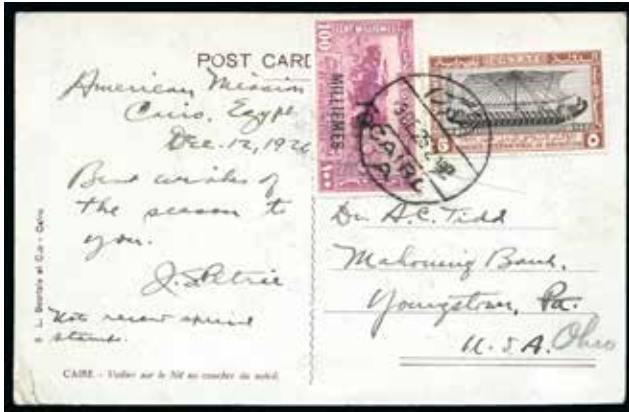 POST CARD
American Mission
Cairo, Egypt
Dec. 12, 1926
Best wishes of
the season to
you.
J. S. Petrie
Note recent special
stamps.
CAIRE - Voilier sur le Nil au coucher du soleil.
Cairo
100
MILLIEMES
EGYPTE
5
٥
CAIRO
A
Dr. A. C. Tidd
Mahoning Bank.
Youngstown, Pa.
U. S. A. Ohio